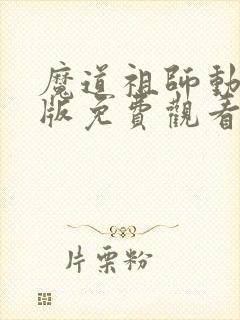 魔道祖師動
版免費觀看
片栗粉